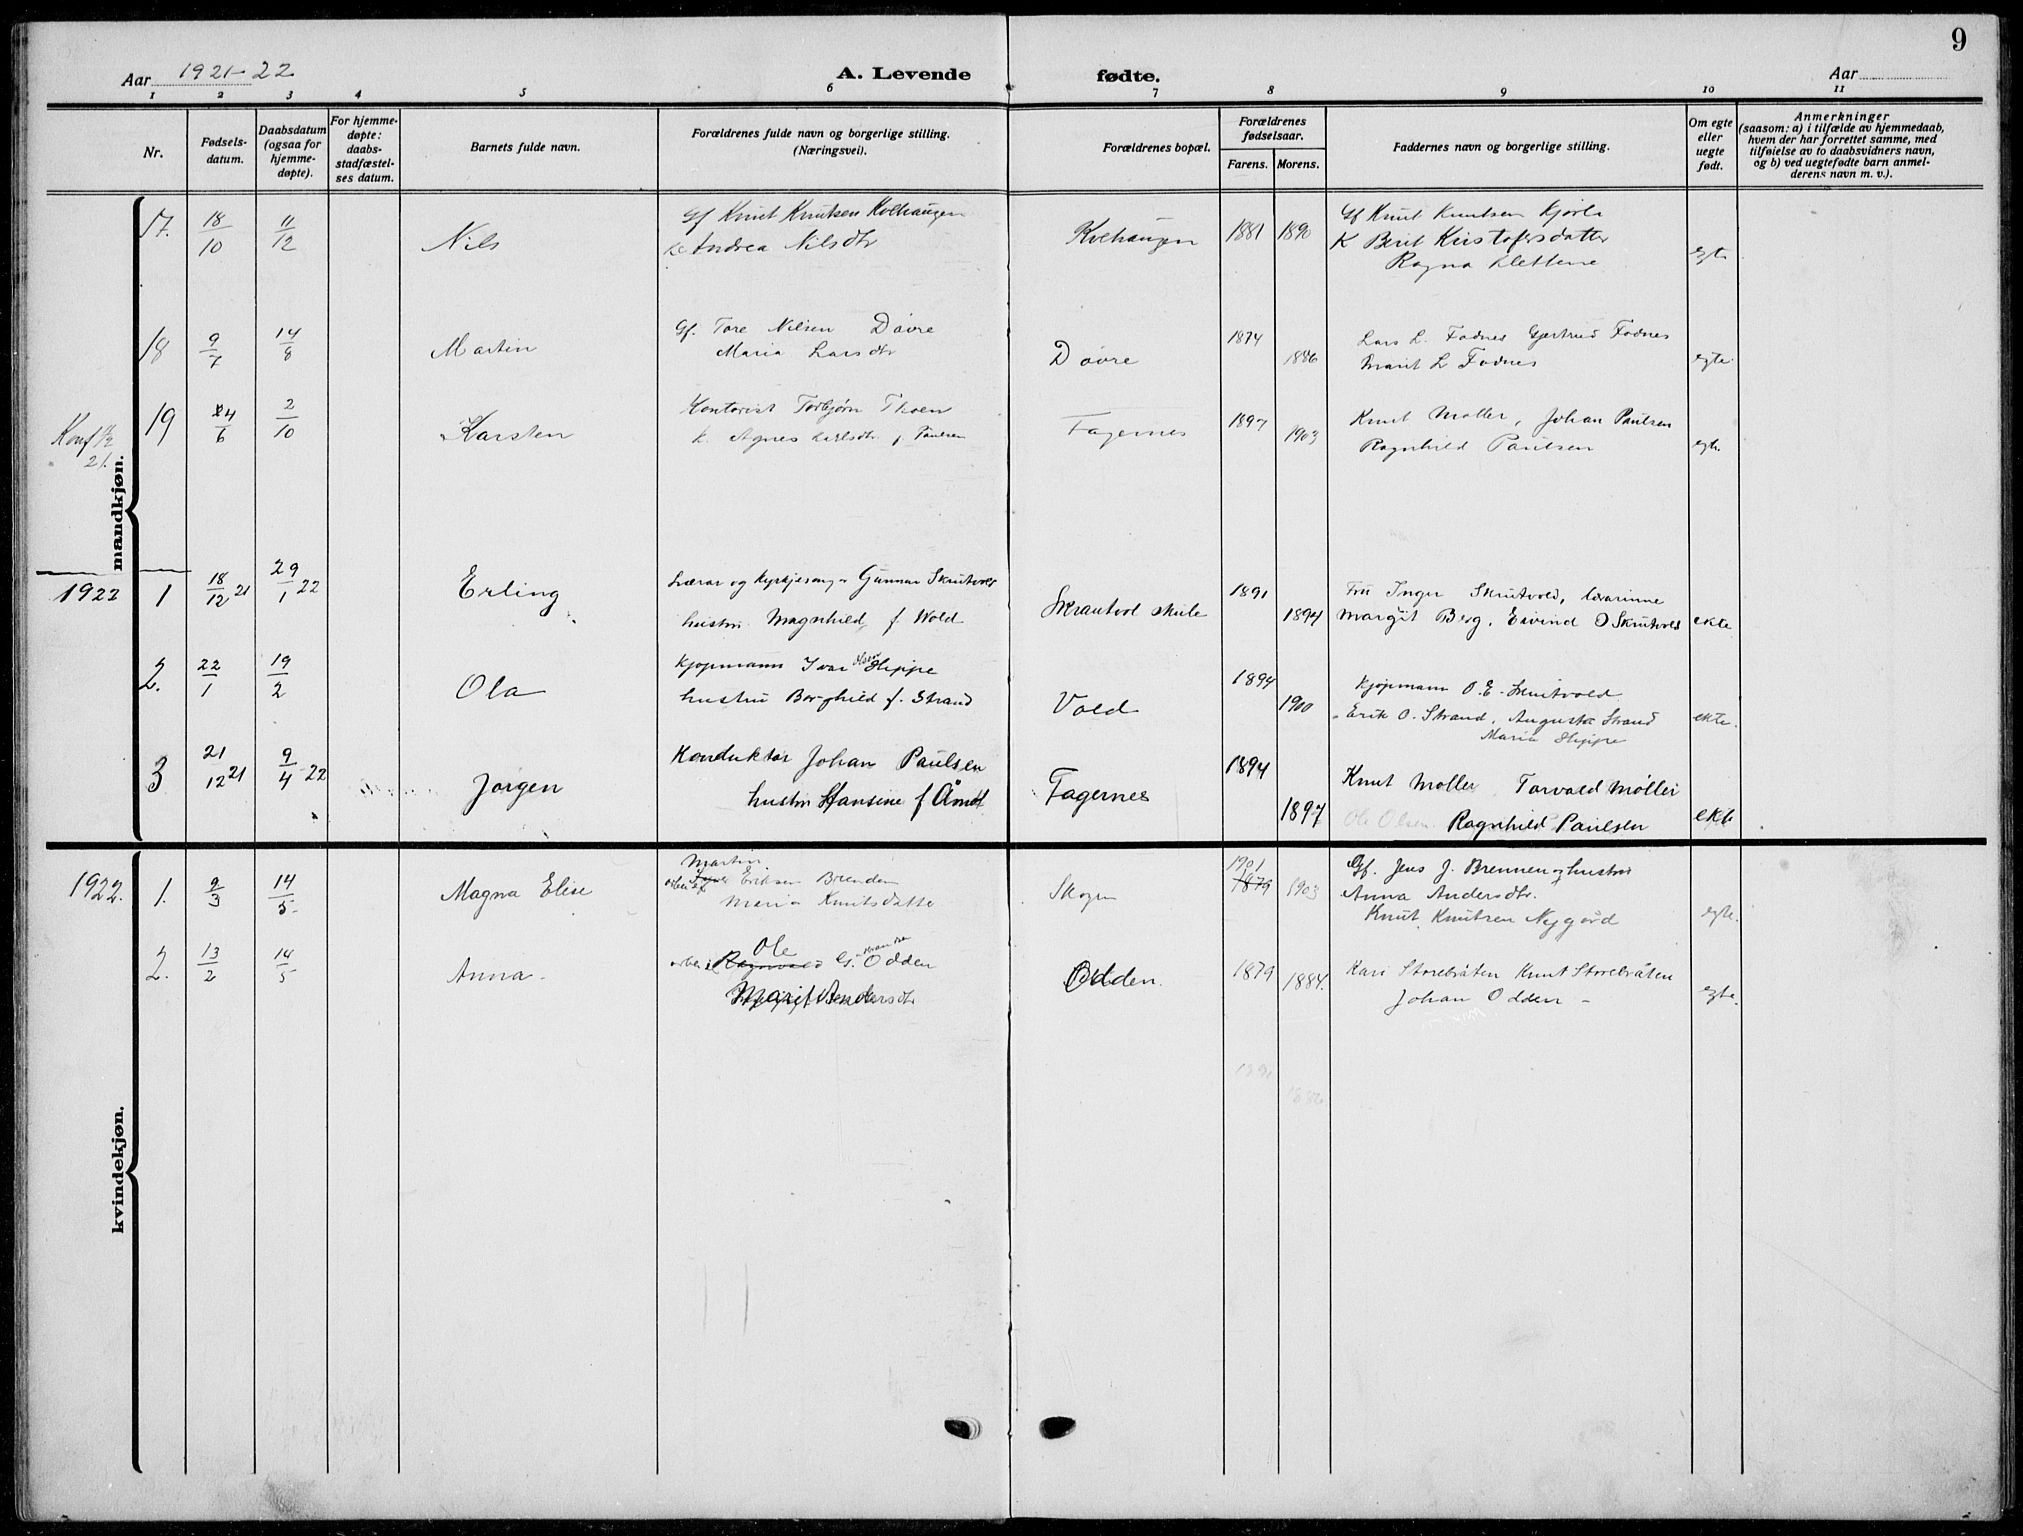 9
Aar 1921-22 A. Levende fødte. Aar
1 2 3 4 5 6 7 8 9 10 11
Nr.
Fødsels-
datum.
Daabsdatum
(ogsaa for
hjemme-
døpte).
For hjemme-
døpte:
daabs-
stadfæstel-
ses datum.
Barnets fulde navn.
Forældrenes fulde navn og borgerlige stilling.
(Næringsvei).
Forældrenes bopæl.
Forældrenes
fødselsaar.
Farens. Morens.
Faddernes navn og borgerlige stilling.
Om egte
eller
uegte
født.
Anmerkninger
(saasom: a) i tilfælde av hjemmedaab,
hvem der har forrettet samme, med
tilføielse av to daabsvidners navn,
og b) ved uegtefødte barn anmel-
derens navn m. v.).
mandkjøn.
17. 18/10 11/12 Nils
Gf Knut Knutsen Kolhaugen
Andrea Nilsdtr
Kolhaugen 1881 1890
Gf Knut Knutsen
K Berit Kristofersdatter
Ragna Klettene
egte
18 9/7 14/8 Martin
Gf. Tore Nilsen Døvre
Maria Larsdtr
Døvre 1874 1886
Lars L. Fodnes Gjertrud Fodnes
Marit L Fodnes
egte
Konf
21.
19 24/6 2/10 Karsten
Kontorist Torbjørn Thoen
k. Agnes Karlsdtr f Paulsen
Fagernes 1897 1903
Knut Møller, Johan Paulsen
Ragnhild Paulsen
egte.
1922 1 18/12 21 29/1 22 Erling
Lærar og kyrkjesongar Gunnar Skrutvold
hustru Magnhild f. Wold
Skrautvol skule 1891 1894
Fru Inger Skrutvold, lærarinne
Margit Berg, Eivind O Skrutvold
ekte
2. 22/1 19/2 Ola
Kjøpmann Ivar Olsen Hippe
hustru Borghild f. Strand
Vold 1894 1900
Kjøpmann O. E. Skrutvold
Erik O. Strand, Augusta Strand
Maria Hippe
ekte.
3 21/12 21 9/4 22 Jørgen
Konduktør Johan Paulsen
hustru Hansine f Åmot
Fagernes 1894 1897
Knut Møller Torvald Møller
Ole Olsen Ragnhild Paulsen
ekte
kvindekjøn.
1922. 1. 9/3 14/5 Magna Elise
Martin
arbeid. Eriksen Brenden
Maria Knutsdatter
Skogen 1901 1879 1903
Gf. Jens J. Brennen og hustru
Anna Andersdtr.
Knut Knutsen Nygård
egte.
2. 13/2 14/5 Anna
Ole
arbei. Ragnvald G. Odden
Marit Andersdtr
Odden. 1879 1884.
Kari Storebråten Knut Storebråten
Johan Odden
egte.
1891
1886